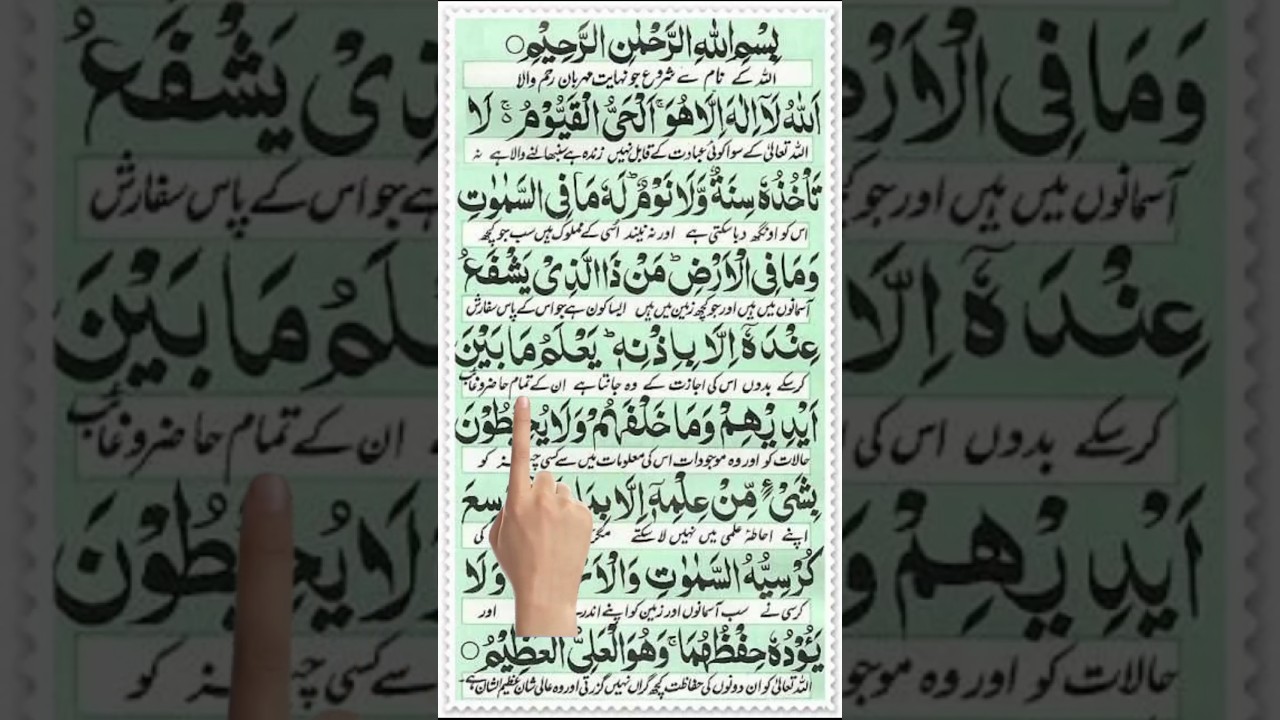 بِسْمِ اللّٰهِ الرَّحْمٰنِ الرَّحِیْمِ
اللہ کے نام سے شروع جو نہایت مہربان رحم والا
اَللّٰهُ لَاۤ اِلٰهَ اِلَّا هُوَ ۚ اَلْحَیُّ الْقَیُّوْمُ ۚ لَا
اللہ تعالیٰ کے سوا کوئی عبادت کے قابل نہیں زندہ ہے سنبھالنے والا ہے نہ
تَاْخُذُهٗ سِنَةٌ وَّلَا نَوْمٌ ؕ لَهٗ مَا فِی السَّمٰوٰتِ
اس کو اونگھ دبا سکتی ہے اور نہ نیند اسی کے مملوک ہیں سب جو کچھ
وَمَا فِی الْاَرْضِ ؕ مَنْ ذَا الَّذِیْ یَشْفَعُ
آسمانوں میں ہیں اور جو کچھ زمین میں ہیں ایسا کون ہے جو اس کے پاس سفارش
عِنْدَهٗۤ اِلَّا بِاِذْنِهٖ ؕ یَعْلَمُ مَا بَیْنَ
کرسکے بدوں اس کی اجازت کے وہ جانتا ہے ان کے تمام حاضر و غائب
اَیْدِیْهِمْ وَمَا خَلْفَهُمْ وَلَا یُحِیْطُوْنَ
حالات کو اور وہ موجودات اس کی معلومات میں سے کسی چیز کو
بِشَیْءٍ مِّنْ عِلْمِهٖۤ اِلَّا بِمَا سِعَ
اپنے احاطۂ علمی میں نہیں لا سکتے کی
كُرْسِیُّهُ السَّمٰوٰتِ وَالْاَ وَلَا
کرسی نے سب آسمانوں اور زمین کو اپنے اندر اور
یَـُٔوْدُهٗ حِفْظُهُمَا ۚ وَهُوَ الْعَلِیُّ الْعَظِیْمُ
اللہ تعالیٰ کو ان دونوں کی حفاظت کچھ گراں نہیں گزرتی اور وہ عالی شان عظیم الشان ہے